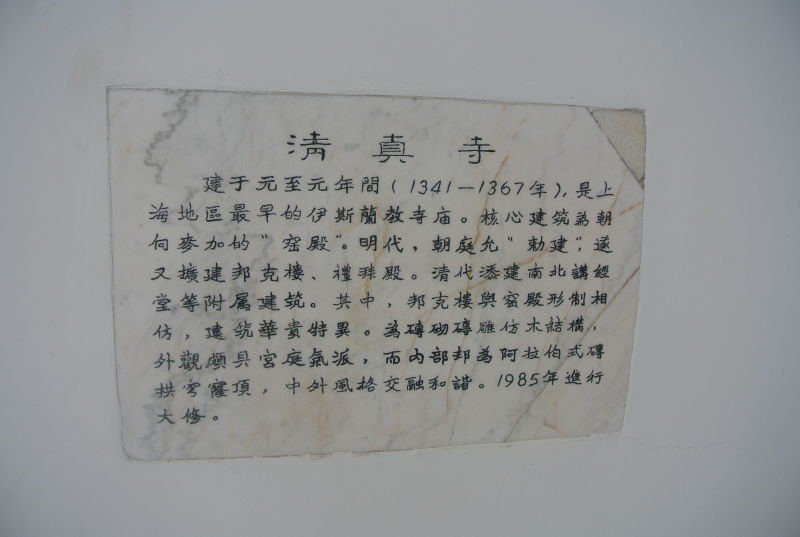 清真寺
建于元至元年間(1341—1367年),是上
海地區最早的伊斯蘭教寺庙。核心建筑為朝
向麥加的“窑殿”。明代,朝庭允“勅建”,遂
又擴建邦克楼、禮拜殿。清代添建南北講經
堂等附属建筑。其中,邦克樓與窑殿形制相
仿,建筑華貴特異。為磚砌磚雕仿木結構,
外觀頗具宮庭氣派,而内部却為阿拉伯式磚
拱穹窿頂,中外風格交融和諧。1985年進行
大修。